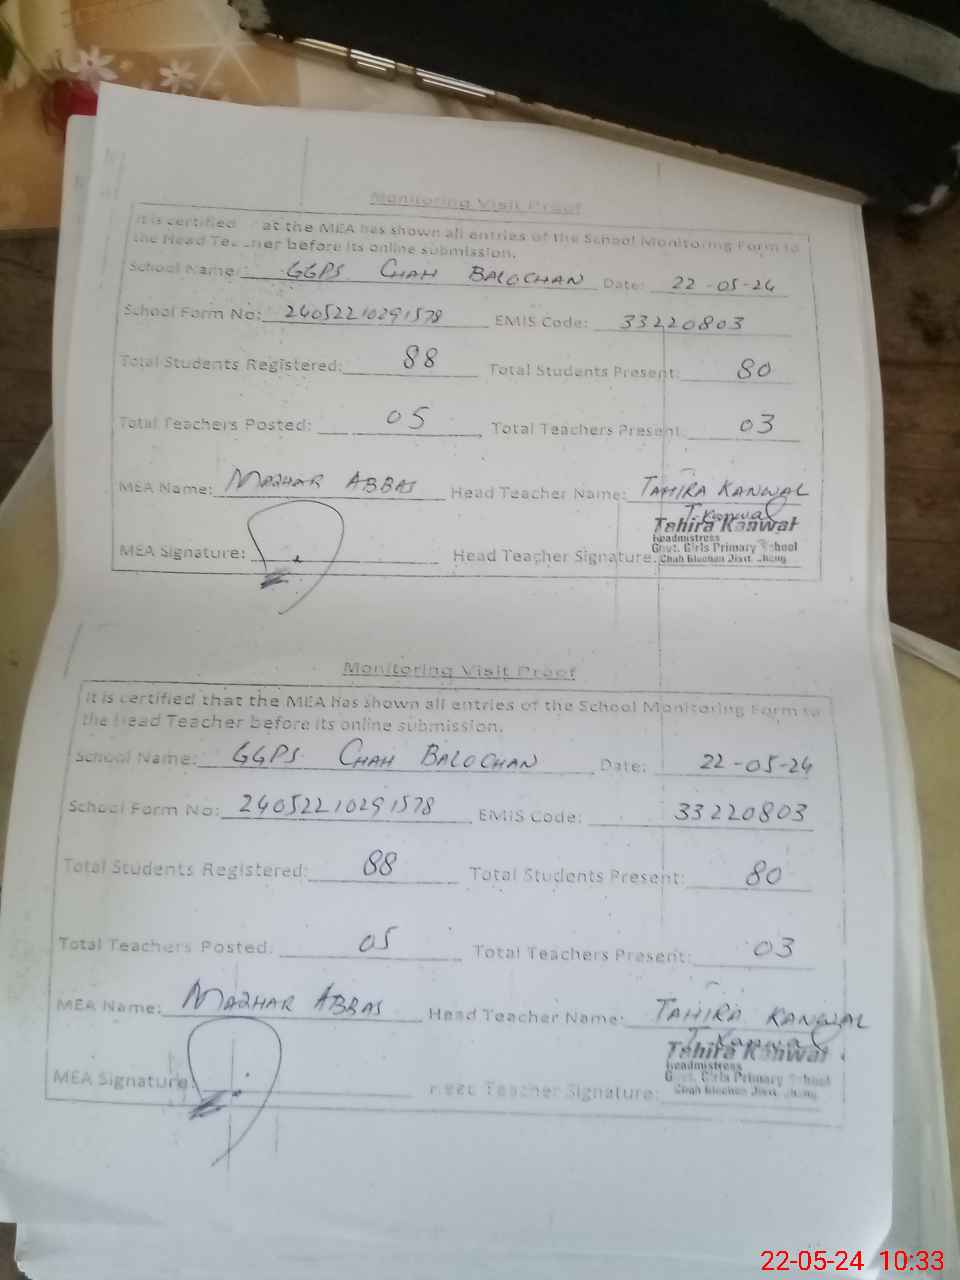 Monitoring Visit Proof
It is certified at the MEA has shown all entries of the School Monitoring Form to
the Head Teacher before its online submission.
School Name: GGPS CHAH BALOCHAN Date: 22-05-24
School Form No: 24052210291578 EMIS Code: 33220803
Total Students Registered: 88 Total Students Present: 80
Total Teachers Posted: 05 Total Teachers Present: 03
MEA Name: MAZHAR ABBAS Head Teacher Name: TAHIRA KANWAL
T.Kanwal
Tahira Kanwal
Headmistress
Govt. Girls Primary School
MEA Signature: Head Teacher Signature: Chah Blochan Distt. Jhang
Monitoring Visit Proof
It is certified that the MEA has shown all entries of the School Monitoring Form to
the Head Teacher before its online submission.
School Name: GGPS CHAH BALOCHAN Date: 22-05-24
School Form No: 24052210291578 EMIS Code: 33220803
Total Students Registered: 88 Total Students Present: 80
Total Teachers Posted: 05 Total Teachers Present: 03
MEA Name: MAZHAR ABBAS Head Teacher Name: TAHIRA KANWAL
T.Kanwal
Tahira Kanwal
Headmistress
Govt. Girls Primary School
MEA Signature: Head Teacher Signature: Chah Blochan Distt. Jhang
22-05-24 10:33